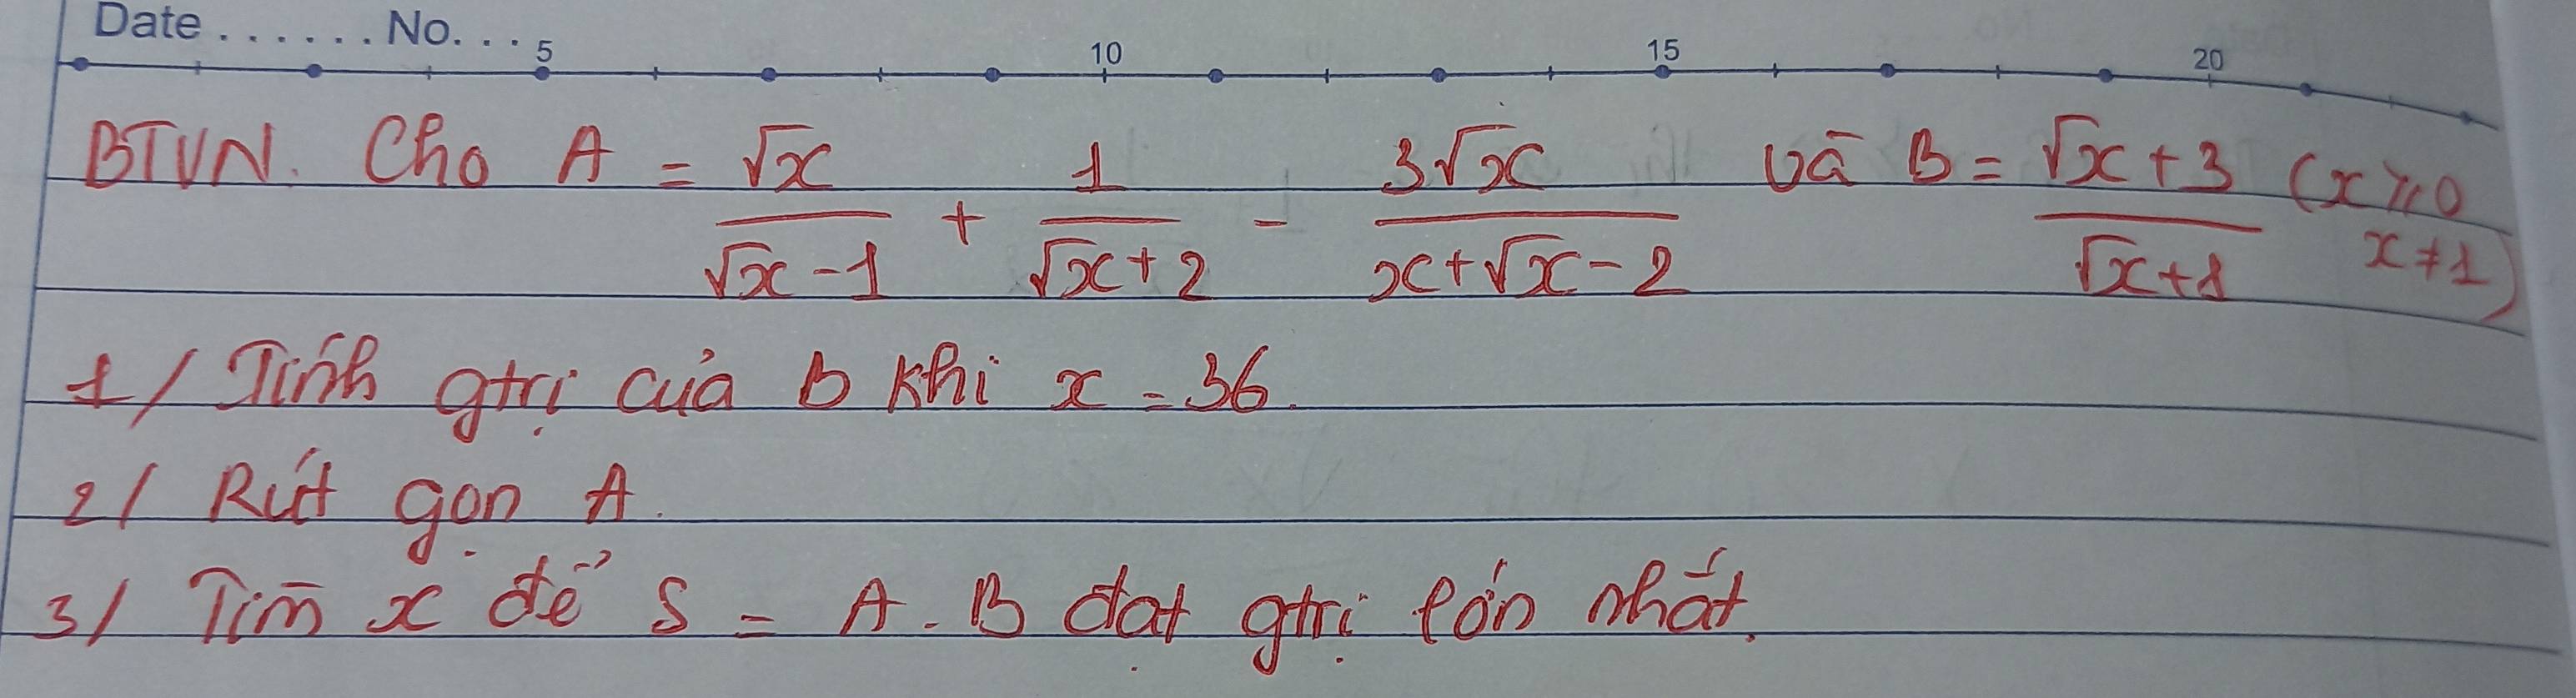 Date ...... No. ...
5 10 15 20
BTVN. Cho A = √x/(√x-1) + 1/(√x+2) - 3√x/(x+√x-2) và B = √x+3/(√x+1) (x ≥ 0 x ≠ 1)
1/ Tính gtrị của B khi x = 36.
2/ Rút gọn A.
3/ Tìm x để S = A.B đạt gtrị lớn nhất.